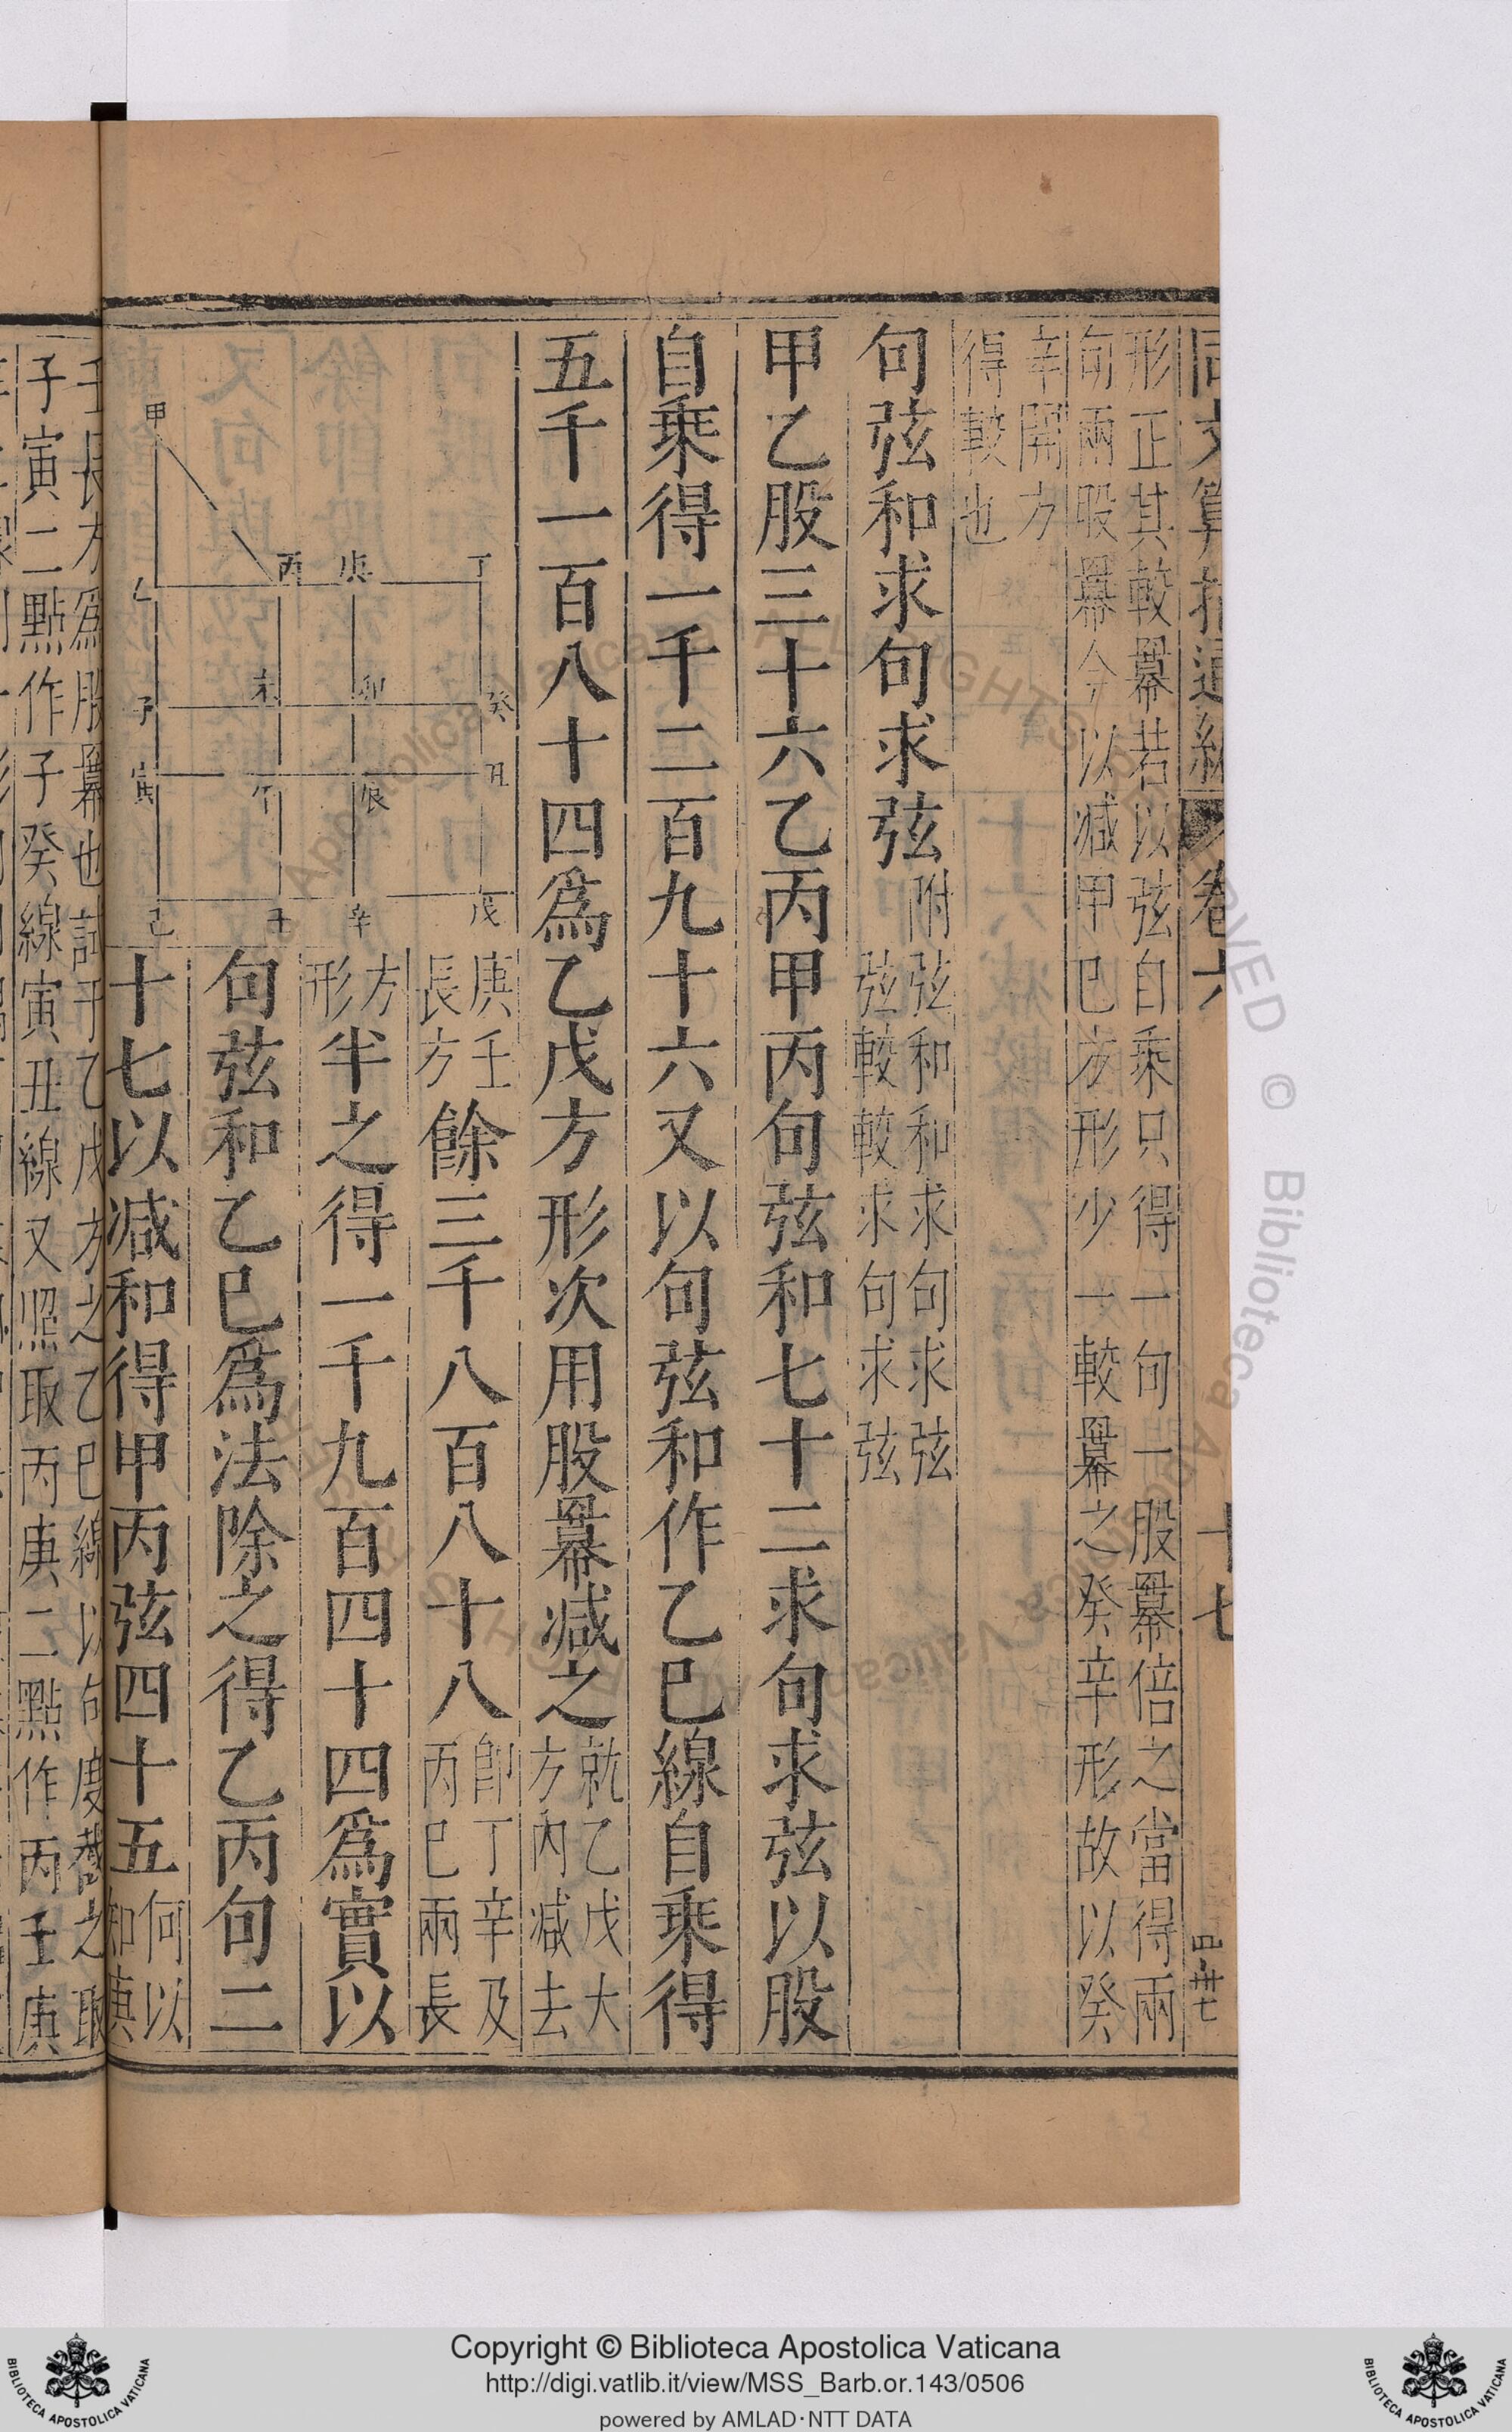 形正其較羃若以弦自乘只得一句一股羃倍之當得兩
句兩股羃今以減甲巳方形少一較羃之癸辛形故以癸
辛開方
得較也
句弦和求句求弦
附
弦和和求句求弦
弦較較求句求弦
甲乙股三十六乙丙甲丙句弦和七十二求句求弦以股
自乘得一千二百九十六又以句弦和作乙巳線自乘得
五千一百八十四爲乙戊方形次用股羃減之
就乙戊大
方內減去
庚壬
長方
餘三千八百八十八
卽丁辛及
丙巳兩長
方
形
半之得一千九百四十四爲實以
句弦和乙巳爲法除之得乙丙句二
十七以減和得甲丙弦四十五
何以
知庚
甲
乙
丙
庚
丁
子
未
卯
癸
寅
午
辰
丑
己
壬
辛
戊
壬長方爲股羃也試于乙戊方之乙巳線以句度截之取
子寅二點作子癸線寅丑線又照取丙庚二點作丙壬庚
卷六
十七
Copyright © Biblioteca Apostolica Vaticana
http://digi.vatlib.it/view/MSS_Barb.or.143/0506
powered by AMLAD·NTT DATA
BIBLIOTECA APOSTOLICA VATICANA
BIBLIOTECA APOSTOLICA VATICANA